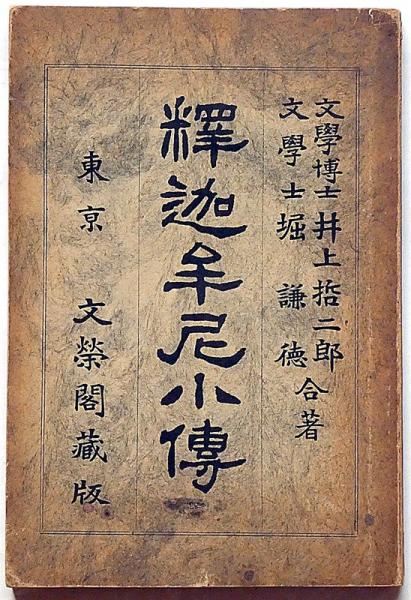 文學博士井上哲二郎
文學士堀謙德
合著
釋迦牟尼小傳
東京 文榮閣藏版